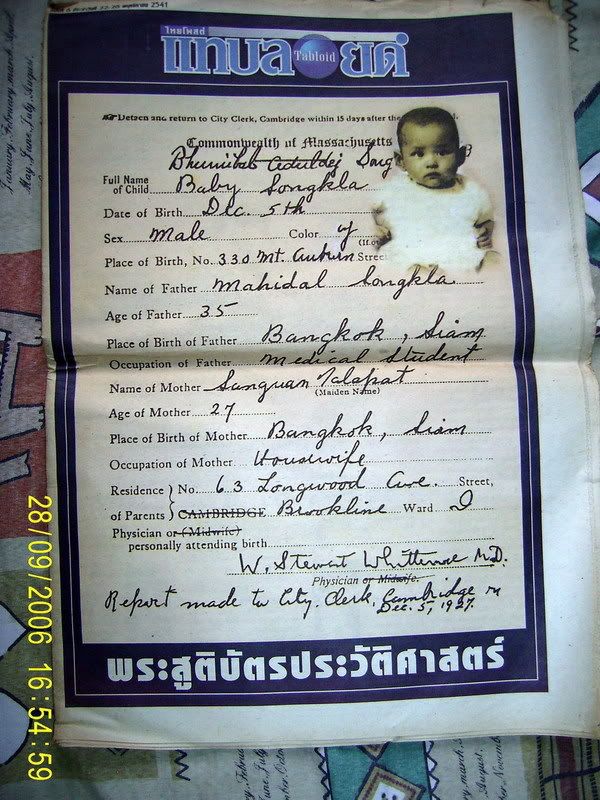 2541
ไทยโพสต์
แทบลอยด์
Tabloid
Detach and return to City Clerk, Cambridge within 15 days after the
Commonwealth of Massachusetts
Bhumibol Aduldej Song
Full Name of Child Baby Songkla
Date of Birth Dec. 5th
Sex male Color y
Place of Birth, No. 330 Mt. Auburn Street
Name of Father Mahidal Songkla
Age of Father 35
Place of Birth of Father Bangkok, Siam
Occupation of Father Medical Student
Name of Mother Sanguan Talapat
(Maiden Name)
Age of Mother 27
Place of Birth of Mother Bangkok, Siam
Occupation of Mother Housewife
Residence of Parents No. 63 Longwood Ave. Street,
CAMBRIDGE Brookline Ward
Physician or (Midwife)
personally attending birth
W. Stewart Whittemore M.D.
Physician or Midwife.
Report made to City Clerk, Cambridge
Dec. 5, 1927.
พระสูติบัตรประวัติศาสตร์
28/09/2006 16:54:59